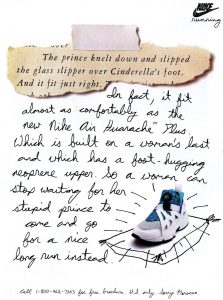 NIKE
running
The prince knelt down and slipped
the glass slipper over Cinderella's foot.
And it fit just right.
In fact, it fit
almost as comfortably as the
new Nike Air Huarache Plus.
Which is built on a woman's last
and which has a foot-hugging
neoprene upper. So a woman can
stop waiting for her
stupid prince to
come and go
for a nice
long run instead.
Call 1-800-462-7363 for free brochure. U.S. only. Sorry